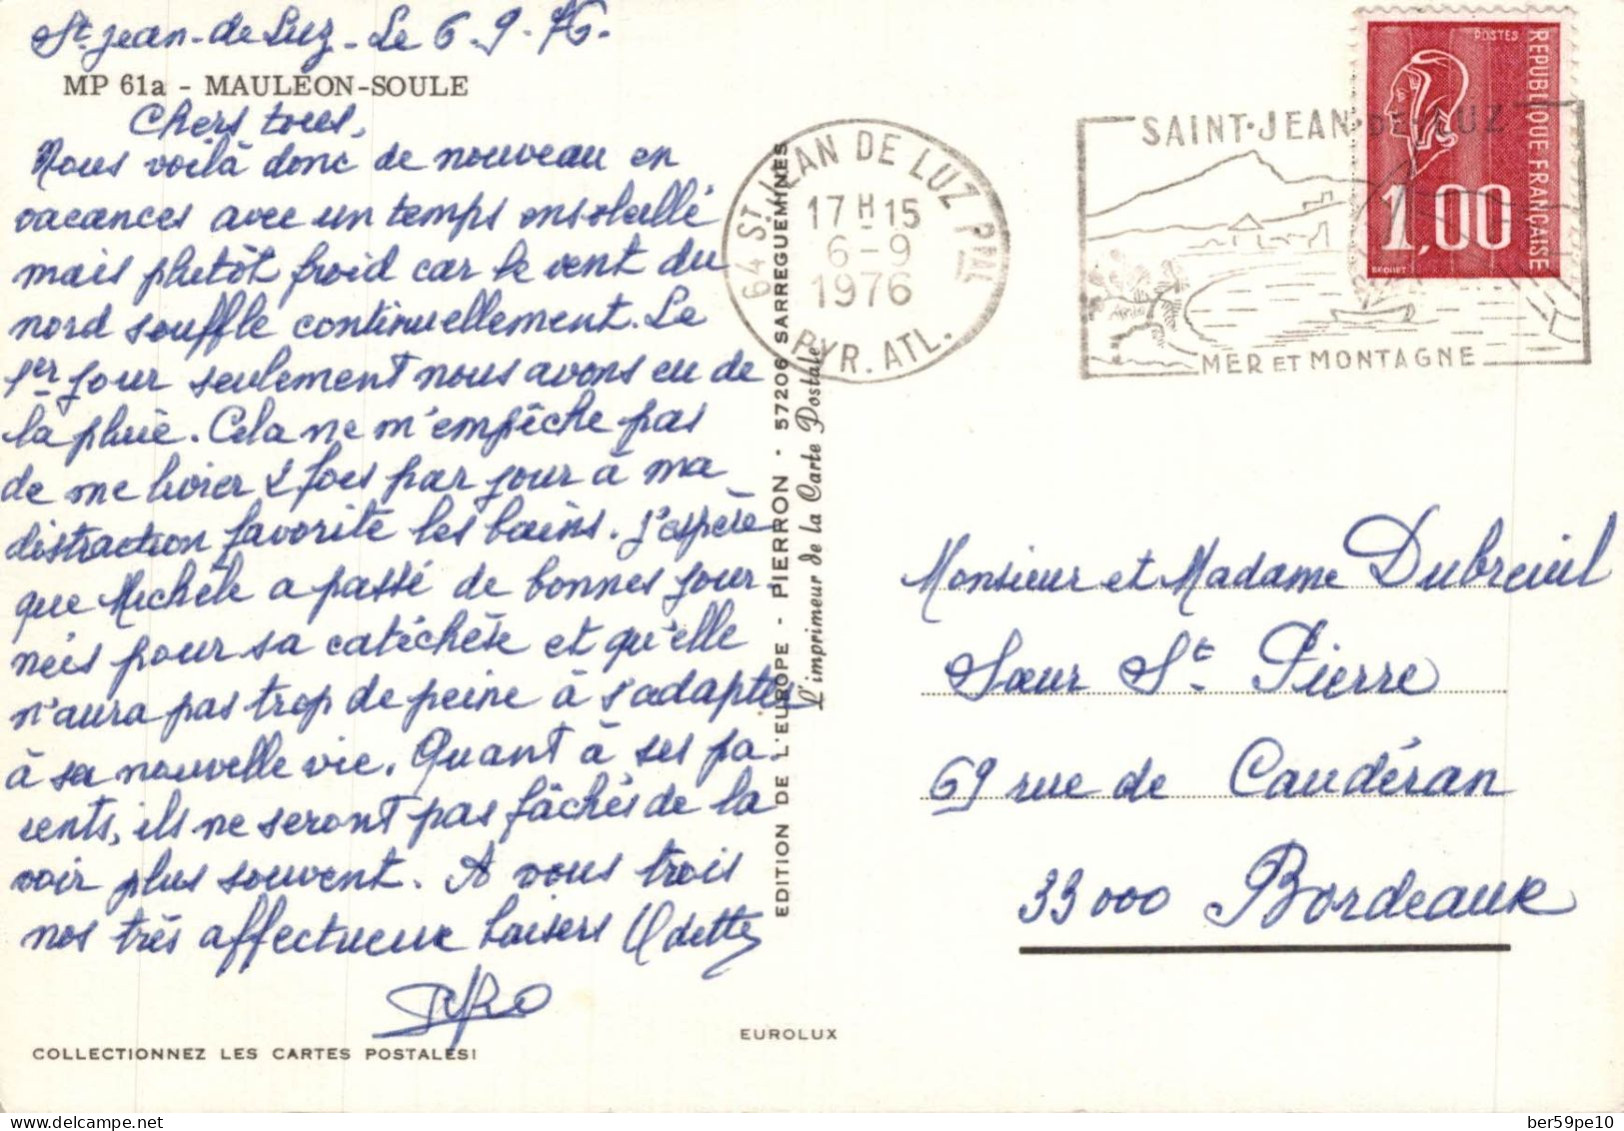 St. Jean-de Luz - Le 6.9.76.
MP 61a - MAULEON-SOULE
Chers tous,
Nous voilà donc de nouveau en
vacances avec un temps ensoleillé
mais plutôt froid car le vent du
nord souffle continuellement. Le
1er jour seulement nous avons eu de
la pluie. Cela ne m'empêche pas
de me livrer 2 fois par jour à ma
distraction favorite les bains. J'espère
que Michèle a passé de bonnes jour
nées pour sa catéchèse et qu'elle
n'aura pas trop de peine à s'adapter
à sa nouvelle vie. Quant à ses pa
rents, ils ne seront pas fâchés de la
voir plus souvent. A vous trois
nos très affectueux baisers Odette
COLLECTIONNEZ LES CARTES POSTALES!
EDITION DE L'EUROPE - PIERRON - 57206 SARREGUEMINES
L'imprimeur de la Carte Postale
EUROLUX
64 ST. JEAN DE LUZ PPAL
17 H 15
6-9
1976
PYR. ATL.
SAINT-JEAN-DE-LUZ
MER ET MONTAGNE
POSTES
REPUBLIQUE FRANÇAISE
1,00
BEQUET
Monsieur et Madame Dubreuil
Sœur St. Pierre
69 rue de Caudéran
33000 Bordeaux
ber59pe10